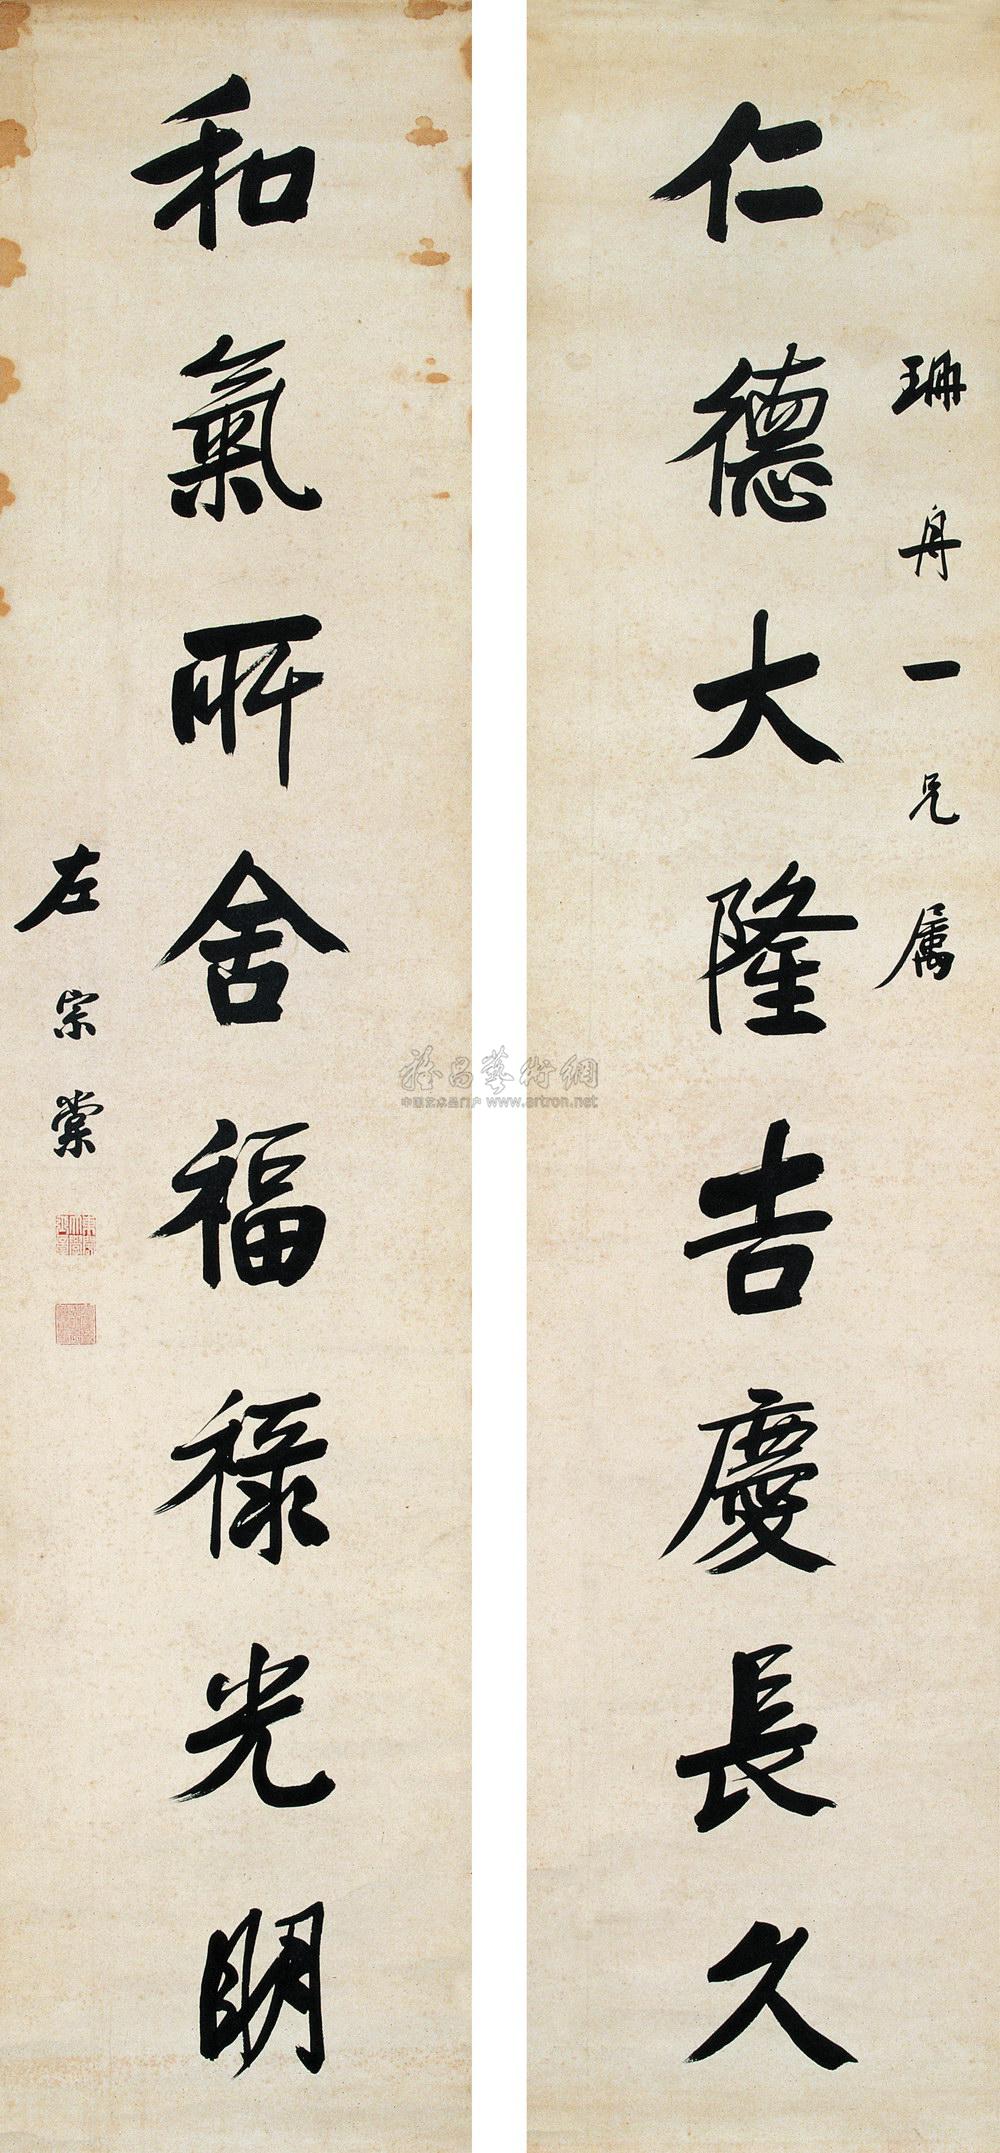 珊舟一兄属
仁德大隆吉慶長久
和氣所舍福祿光明
左宗棠
雅昌藝術網
中国艺术品门户 www.artron.net